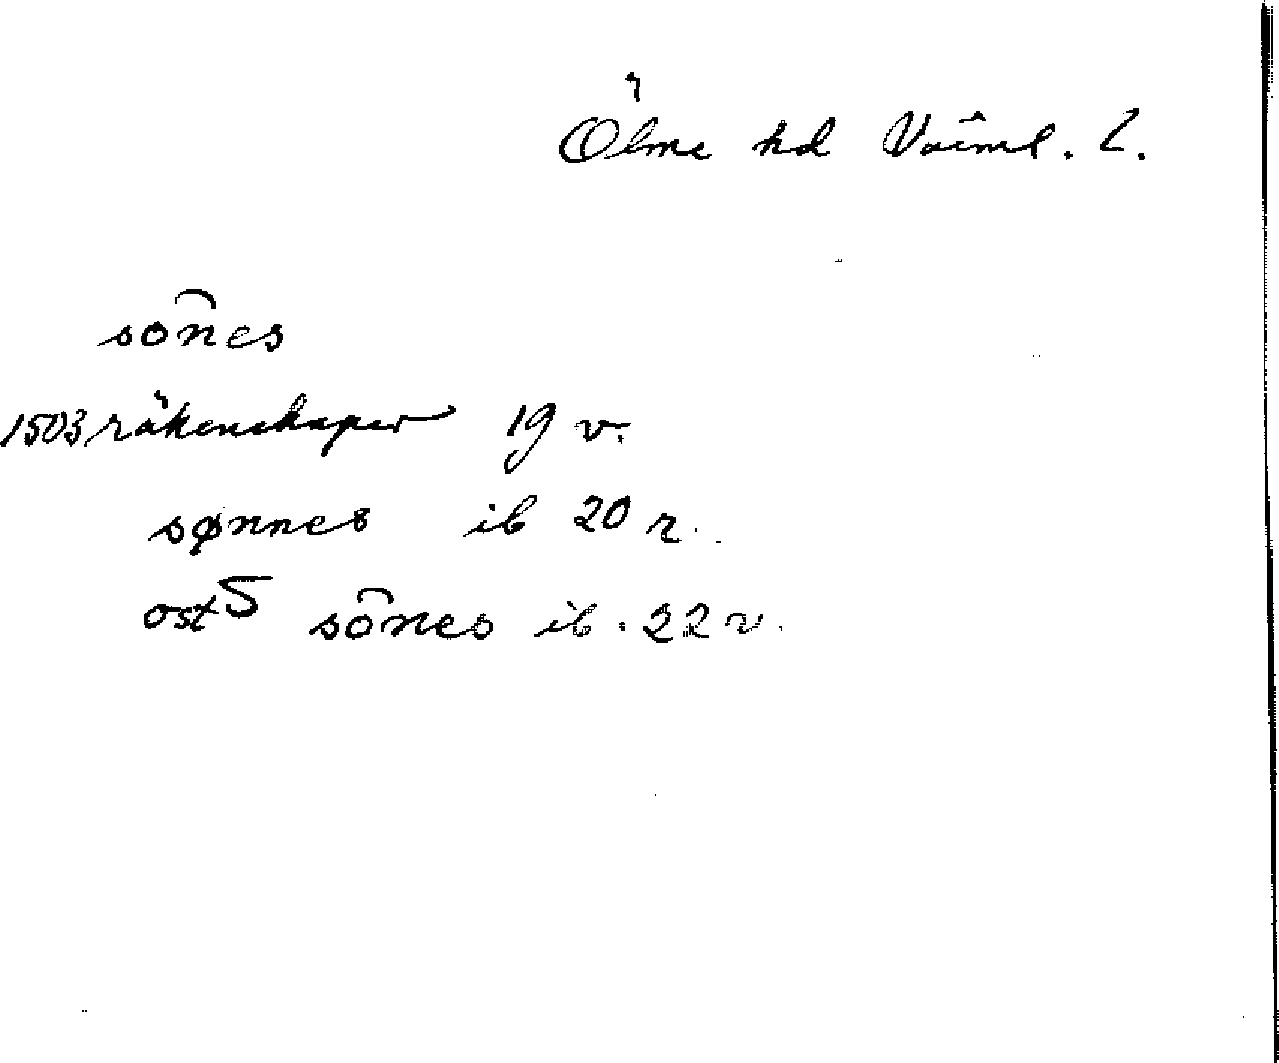 Ölme hd Värml. l.
sön̄es
1503 räkenskaper 19 v.
sønnes ib 20 r.
ost5 sön̄es ib. 22 v.